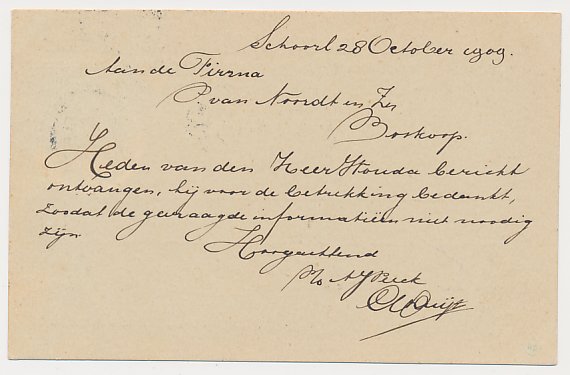 Schoorl 28 October 1909.
Aan de Firma
P. van Noordt en Zn
Boskoop.
Heden van den Heer Houda bericht
ontvangen, hij voor de betrekking bedankt,
zoodat de gevraagde informatiën niet noodig
zijn
Hoogachtend